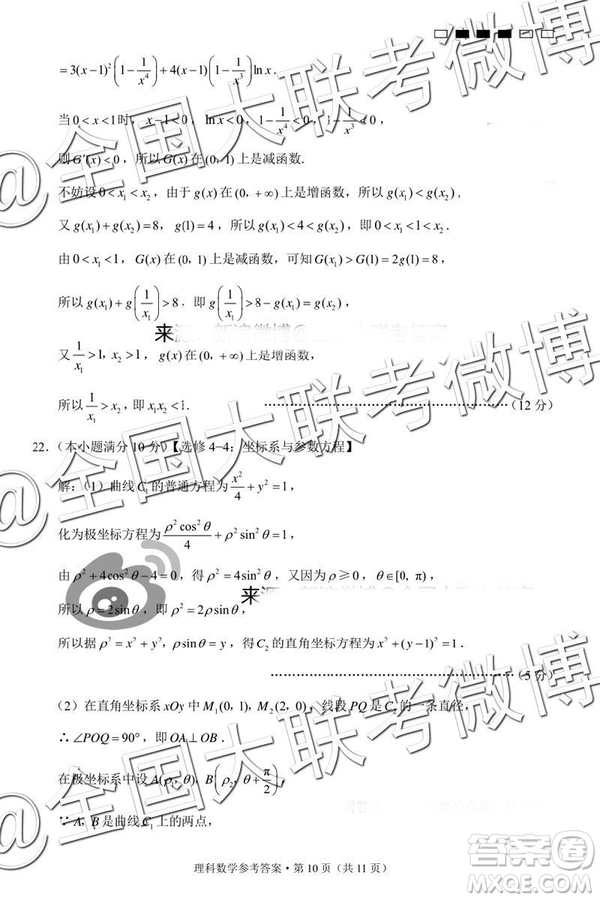 =3(x-1)²(1-1/x⁴)+4(x-1)(1-1/x³)ln x.
当0<x<1时, x-1<0, ln x<0, 1-1/x⁴<0, 1-1/x³<0,
则G′(x)<0,所以G(x)在(0, 1)上是减函数.
不妨设0<x₁<x₂,由于g(x)在(0, +∞)上是增函数,所以g(x₁)<g(x₂),
又g(x₁)+g(x₂)=8, g(1)=4,所以g(x₁)<4<g(x₂),即0<x₁<1<x₂.
由0<x₁<1, G(x)在(0, 1)上是减函数,可知G(x₁)>G(1)=2g(1)=8,
所以g(x₁)+g(1/x₁)>8,即g(1/x₁)>8-g(x₁)=g(x₂),
又1/x₁>1, x₂>1, g(x)在(0, +∞)上是增函数,
所以1/x₁>x₂,即x₁x₂<1. (12分)
22.(本小题满分10分)【选修4-4:坐标系与参数方程】
解:(1)曲线C₁的普通方程为x²/4+y²=1,
化为极坐标方程为ρ²cos²θ/4+ρ²sin²θ=1,
由ρ²+4cos²θ-4=0,得ρ²=4sin²θ,又因为ρ≥0, θ∈[0, π),
所以ρ=2sinθ,即ρ²=2ρsinθ,
所以据ρ²=x²+y², ρsinθ=y,得C₂的直角坐标方程为x²+(y-1)²=1.
(5分)
(2)在直角坐标系xOy中M₁(0, 1), M₂(2, 0),线段PQ是C₂的一条直径,
∴∠POQ=90°,即OA⊥OB.
在极坐标系中设A(ρ₁, θ), B(ρ₂, θ+π/2),
∵A, B是曲线C₁上的两点,
理科数学参考答案·第10页(共11页)
@全国大联考微博
@全国大联考微博
@全国大联考微博
答案圈
MXQE.COM